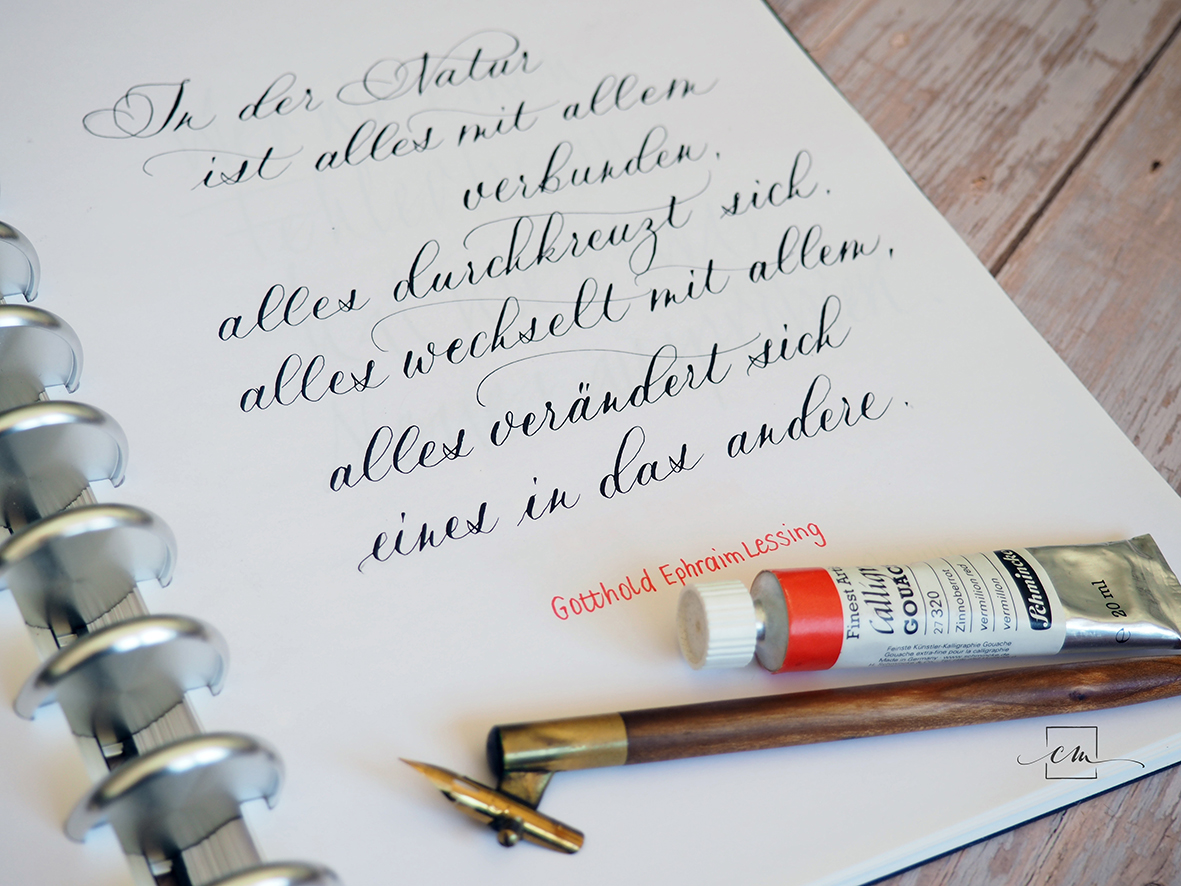 In der Natur
ist alles mit allem
verbunden,
alles durchkreuzt sich,
alles wechselt mit allem,
alles verändert sich
eines in das andere.
Gotthold Ephraim Lessing
Finest Arti
Calligr
GOUAC
27 320
Zinnoberrot
vermilion red
vermillon
Schmincke
e 20 ml
Feinste Künstler-Kalligraphie Gouache
Gouache extra-fine pour la calligraphie
Made in Germany · www.schmincke.de
cm